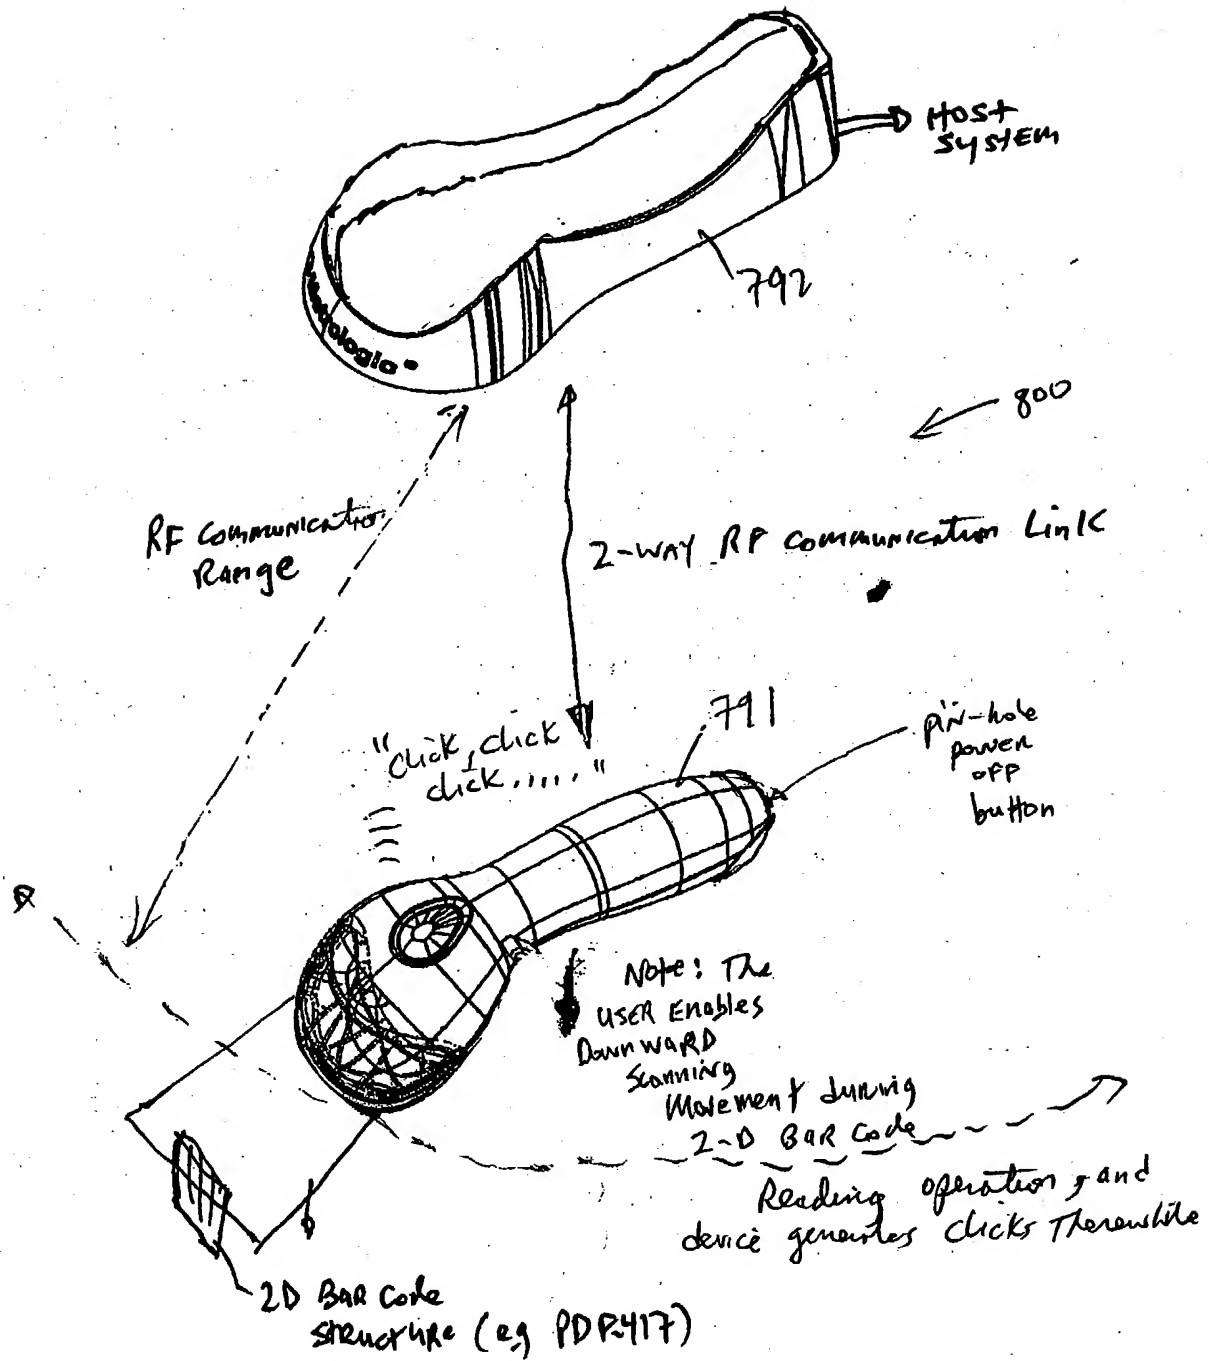 HOST
SYSTEM
792
metrologic
800
RF Communication
Range
2-WAY RF Communication Link
791
"click, click
click....."
pin-hole
power
off
button
Note: The
USER Enables
DownWARD
Scanning
Movement during
2-D BAR Code
Reading operation, and
device generates clicks Therewhile
2D BAR Code
structure (eg PDF-417)